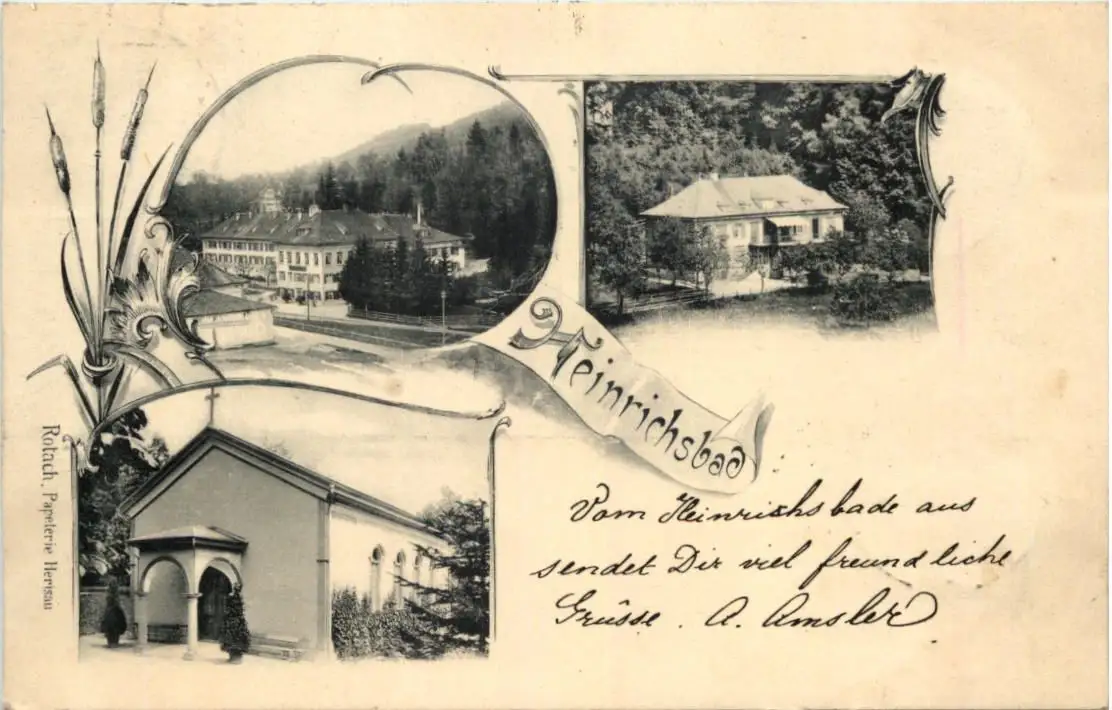 Heinrichsbad
Vom Heinrichsbade aus
sendet Dir viel freundliche
Grüsse. A. Amsler
Rotach, Papeterie Herisau